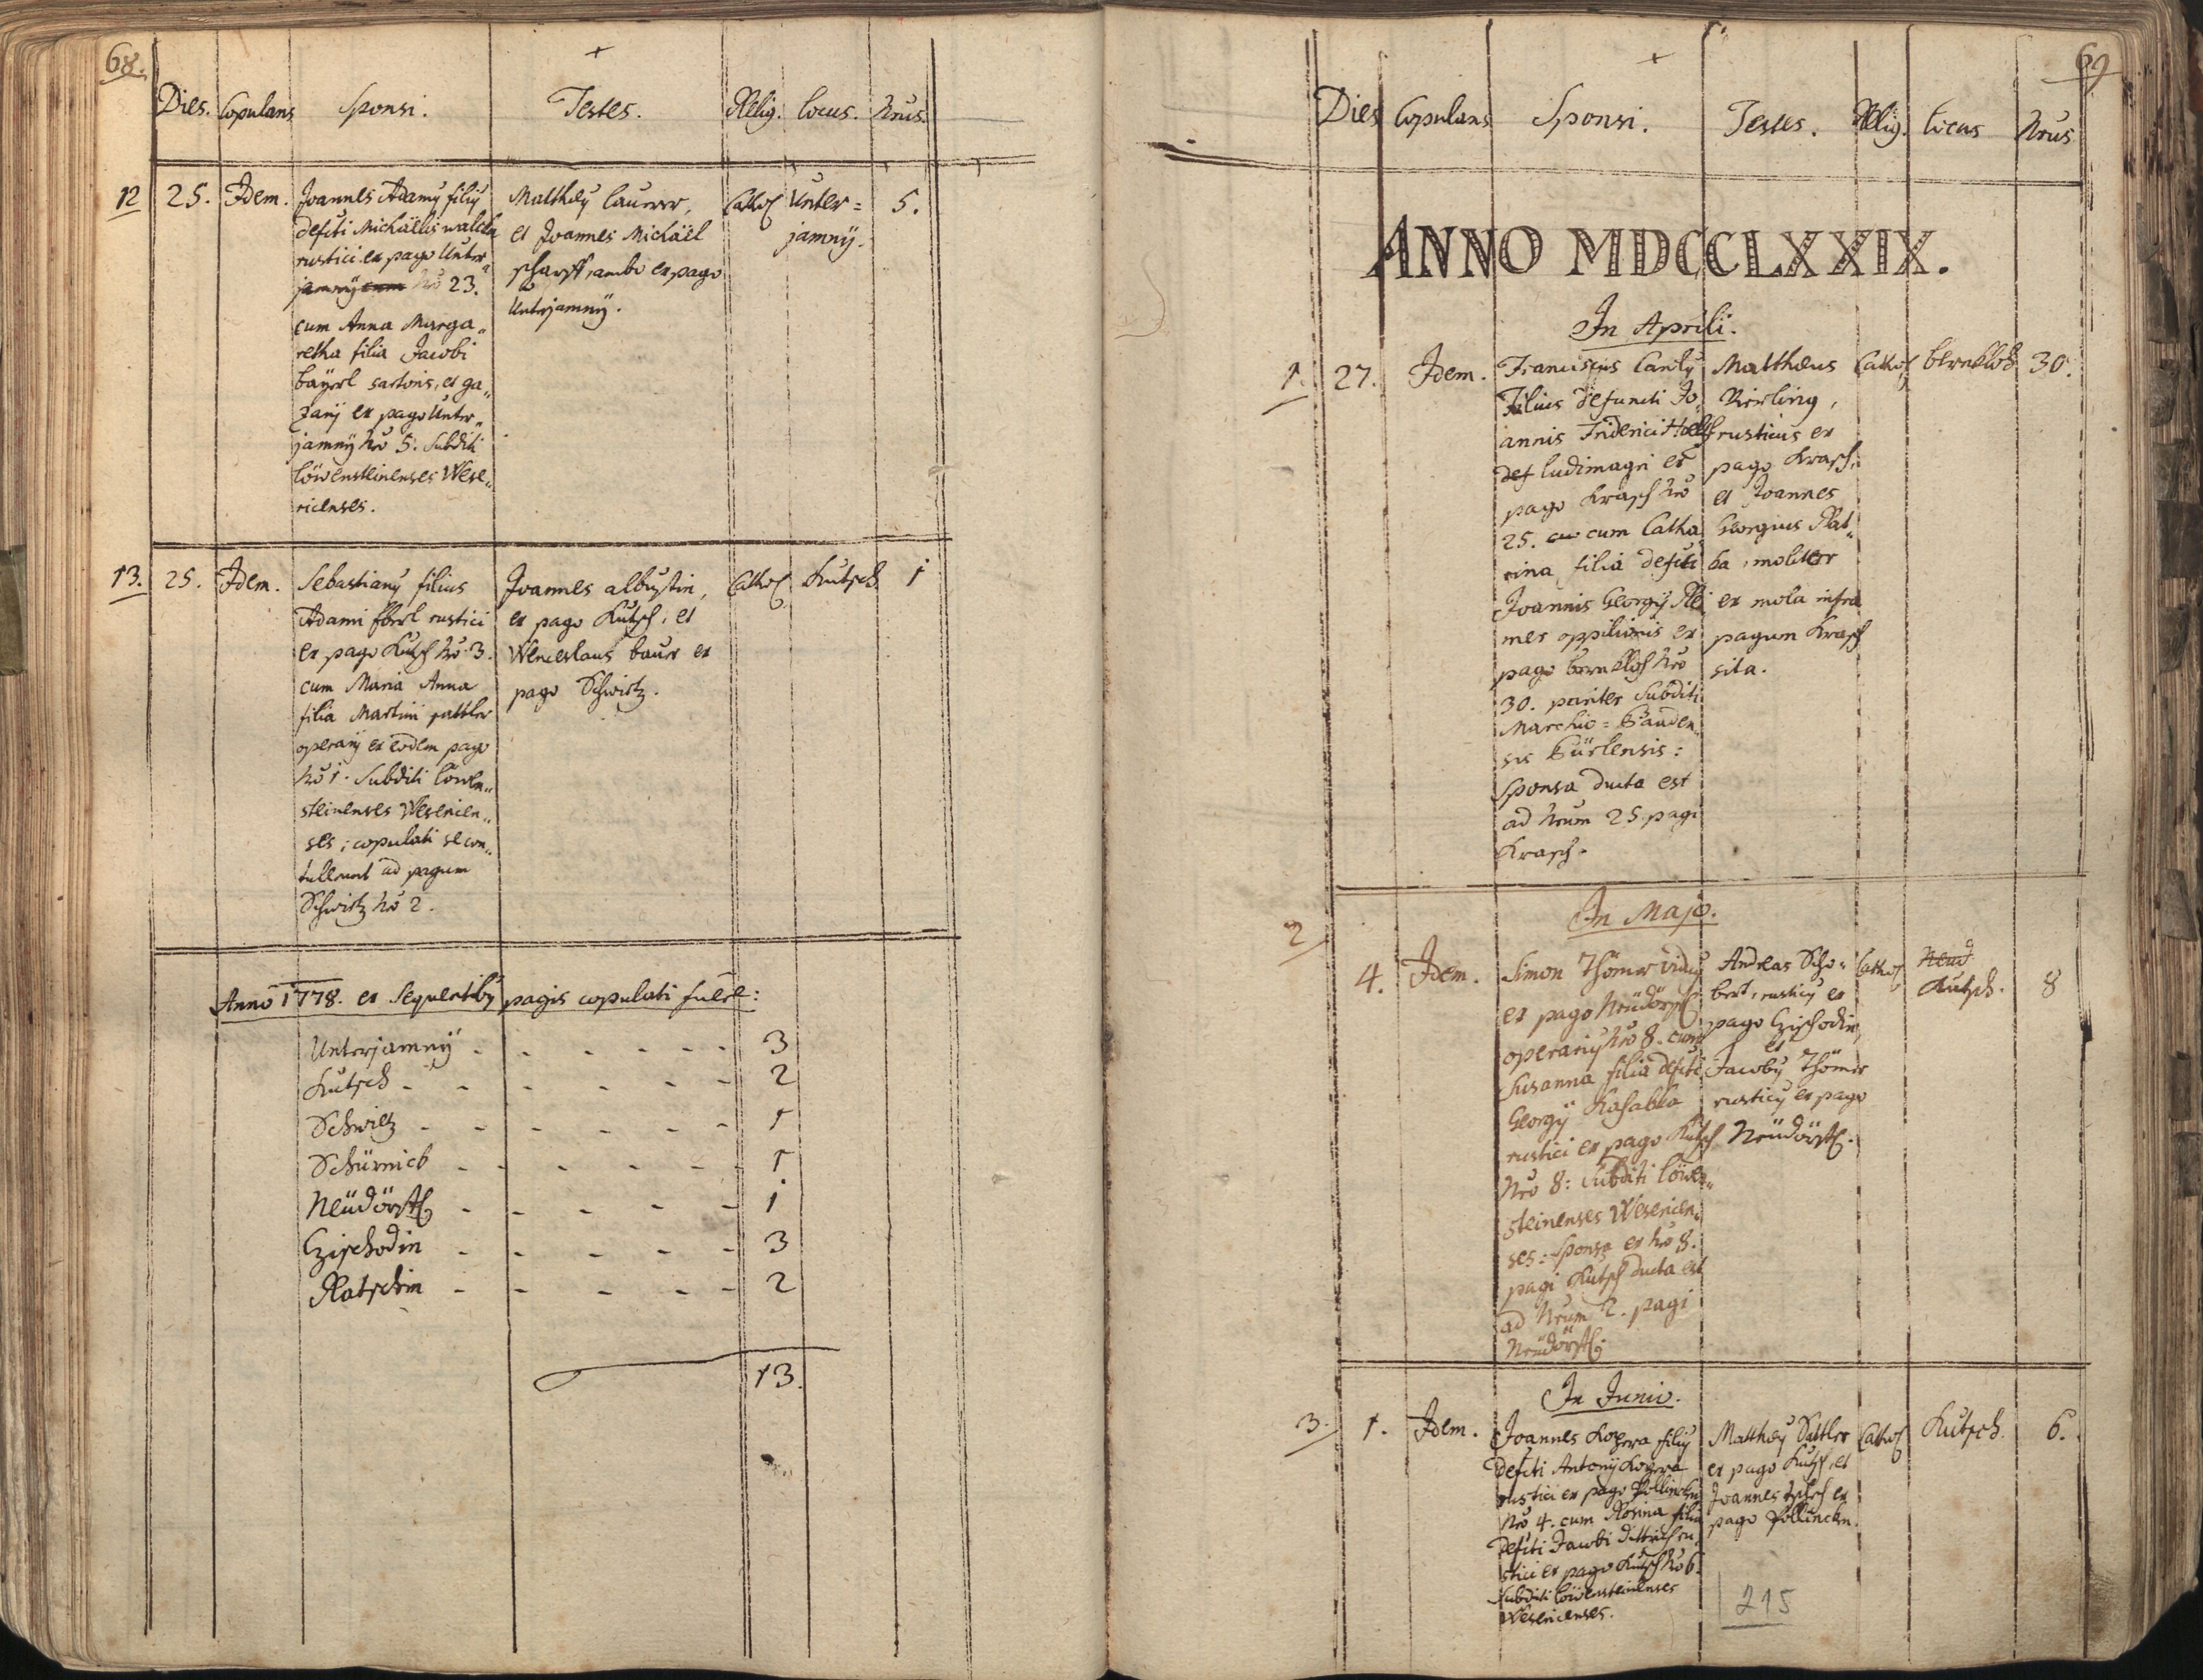 68.
Dies. Copulans Sponsi. Testes. Relig. locus. Nrus.
12 25. Idem.
Joannes Adamy filiy
defcti Michaëlis
rustici ex pago Unter„
jamnÿ cum Nro 23.
cum Anna Marga„
retha filia Jacobi
baÿerl sartoris, et ga„
zarij ex pago Unter„
jamnÿ Nro 5. Subditi
löwensteinenses Wese„
ricenses.
Mathæy laurer,
et Joannes Michäel
ex pago
Unterjamnÿ.
Cathol
Unter=
jamnÿ.
5.
13. 25. Idem.
Sebastiany filius
Adami rustici
ex pago Kutsch Nro 3.
cum Maria Anna
filia Martini sattler
operarij ex eodem pago
Nro 1. Subditi löwen„
steinenses Wesericen„
ses; copulati se con„
tullerunt ad pagum
Schwitz Nro 2.
Joannes albustin,
ex pago Kutsch, et
Wenceslaus baur ex
pago Schwitz.
Cathol
Kutsch
1
Anno 1778. ex sequentiby pagis copulati fuere:
Unterjamnÿ - - - - - - 3
Kutsch - - - - - - 2
Schwitz - - - - - - 1
Schürnick - - - - - 1
Neüdörfl - - - - - 1
Czischodin - - - - - 3
Ratschin - - - - - 2
13.
69
Dies Copulans Sponsi. Testes. Relig. locus Nrus
ANNO MDCCLXXIX.
In Aprili.
1. 27. Idem.
Franciscus
Filius defuncti Jo„
annis Friderici
def ludimagri ex
pago Krasch Nro
25. cu cum Catha„
rina filia defcti
Joannis Georgÿ Rei„
mer oppilionis ex
pago bernkloh Nro
30. pariter Subditi
Marchio = Baaden„
sis
Sponsa ducta est
ad Nrum 25 pagi
Krasch.
Matthæus
Kierling,
rusticus ex
pago Krasch,
et Joannes
Georgius Rat„
ka, molitor
ex mola infra
pagum Krasch
sita.
Cathol
bernkloh
30.
In Majo.
2 4. Idem.
Simon Thömer viduy
ex pago Neüdörfl
operariy Nro 8. cum
Susanna filia defcti
Georgÿ
rustici ex pago Kutsch
Nro 8: Subditi löwen„
steinenses Wesericen„
ses: Sponsa ex Nro 8.
pagi Kutsch ducta est
ad Nrum 2. pagi
Neüdörfl.
Andreas Scho=
bert, rusticy ex
pago Czischodin,
et
Jacoby Thömer
rusticy ex pago
Neüdörfl.
Cathol
Neud
Kutsch.
8
In Junio.
3. 1. Idem.
Joannes Kozera filiy
defcti Antonÿ Kozera
rustici ex pago Pollincken
Nro 4. cum Rosina filia
defcti Jacobi Dittrich ru„
stici ex pago Kutsch Nro 6.
Subditi löwensteinenses
Wesericenses.
Matthæy Sattler
ex pago Kutsch, et
Joannes ex
pago Pollincken.
Cathol
Kutsch.
6.
215